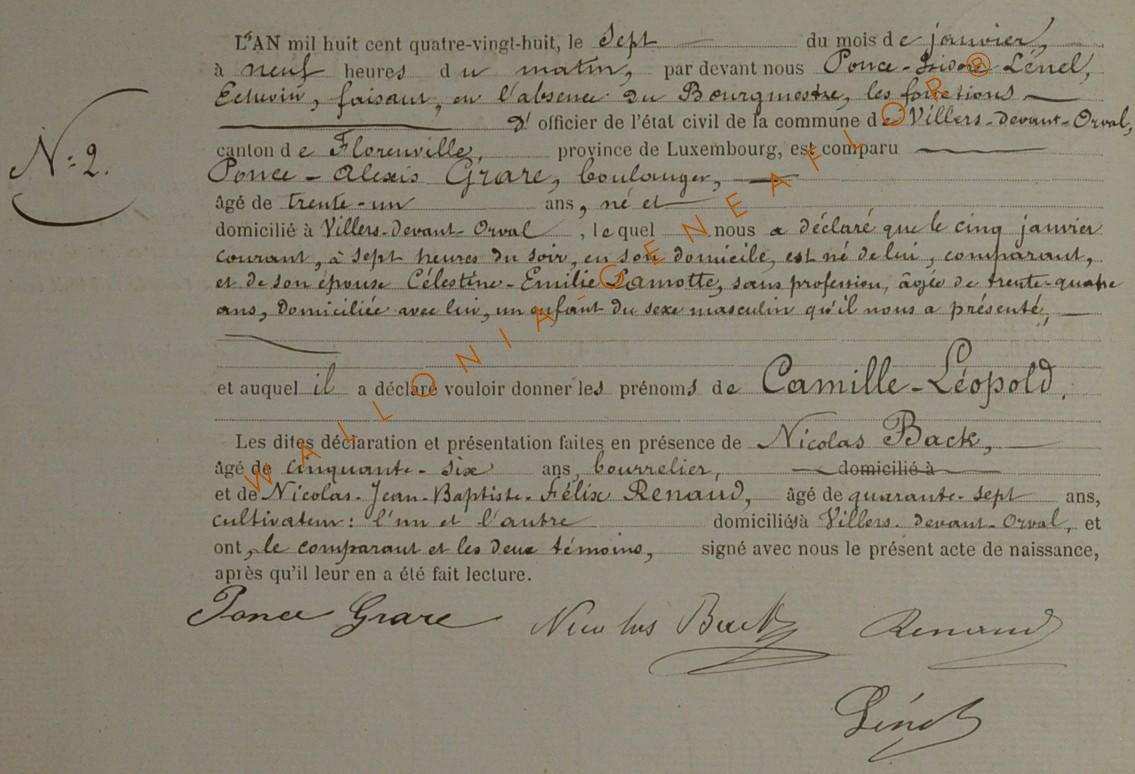 L'AN mil huit cent quatre-vingt-huit, le sept du mois de janvier,
à neuf heures du matin, par devant nous Ponce-Isidore Lénel,
Echevin, faisant, en l'absence du Bourgmestre, les fonctions
d'officier de l'état civil de la commune de Villers-devant-Orval,
N° 2.
canton de Florenville, province de Luxembourg, est comparu
Ponce-Alexis Grare, boulanger,
âgé de trente-un ans, né et
domicilié à Villers-devant-Orval, lequel nous a déclaré que le cinq janvier
courant, à sept heures du soir, en son domicile, est né de lui, comparant,
et de son épouse Célestine-Emilie Lamotte, sans profession, âgée de trente-quatre
ans, domiciliée avec lui, un enfant du sexe masculin qu'il nous a présenté,
et auquel il a déclaré vouloir donner les prénoms de Camille-Léopold.
Les dites déclaration et présentation faites en présence de Nicolas Back,
âgé de cinquante-six ans, bourrelier, domicilié à
et de Nicolas-Jean-Baptiste-Félix Renaud, âgé de quarante-sept ans,
cultivateur: l'un et l'autre domiciliés à Villers-devant-Orval, et
ont, le comparant et les deux témoins, signé avec nous le présent acte de naissance,
après qu'il leur en a été fait lecture.
Ponce Grare Nicolas Back Renaud
Lénel
WALLONIA-GENEAFLOR®